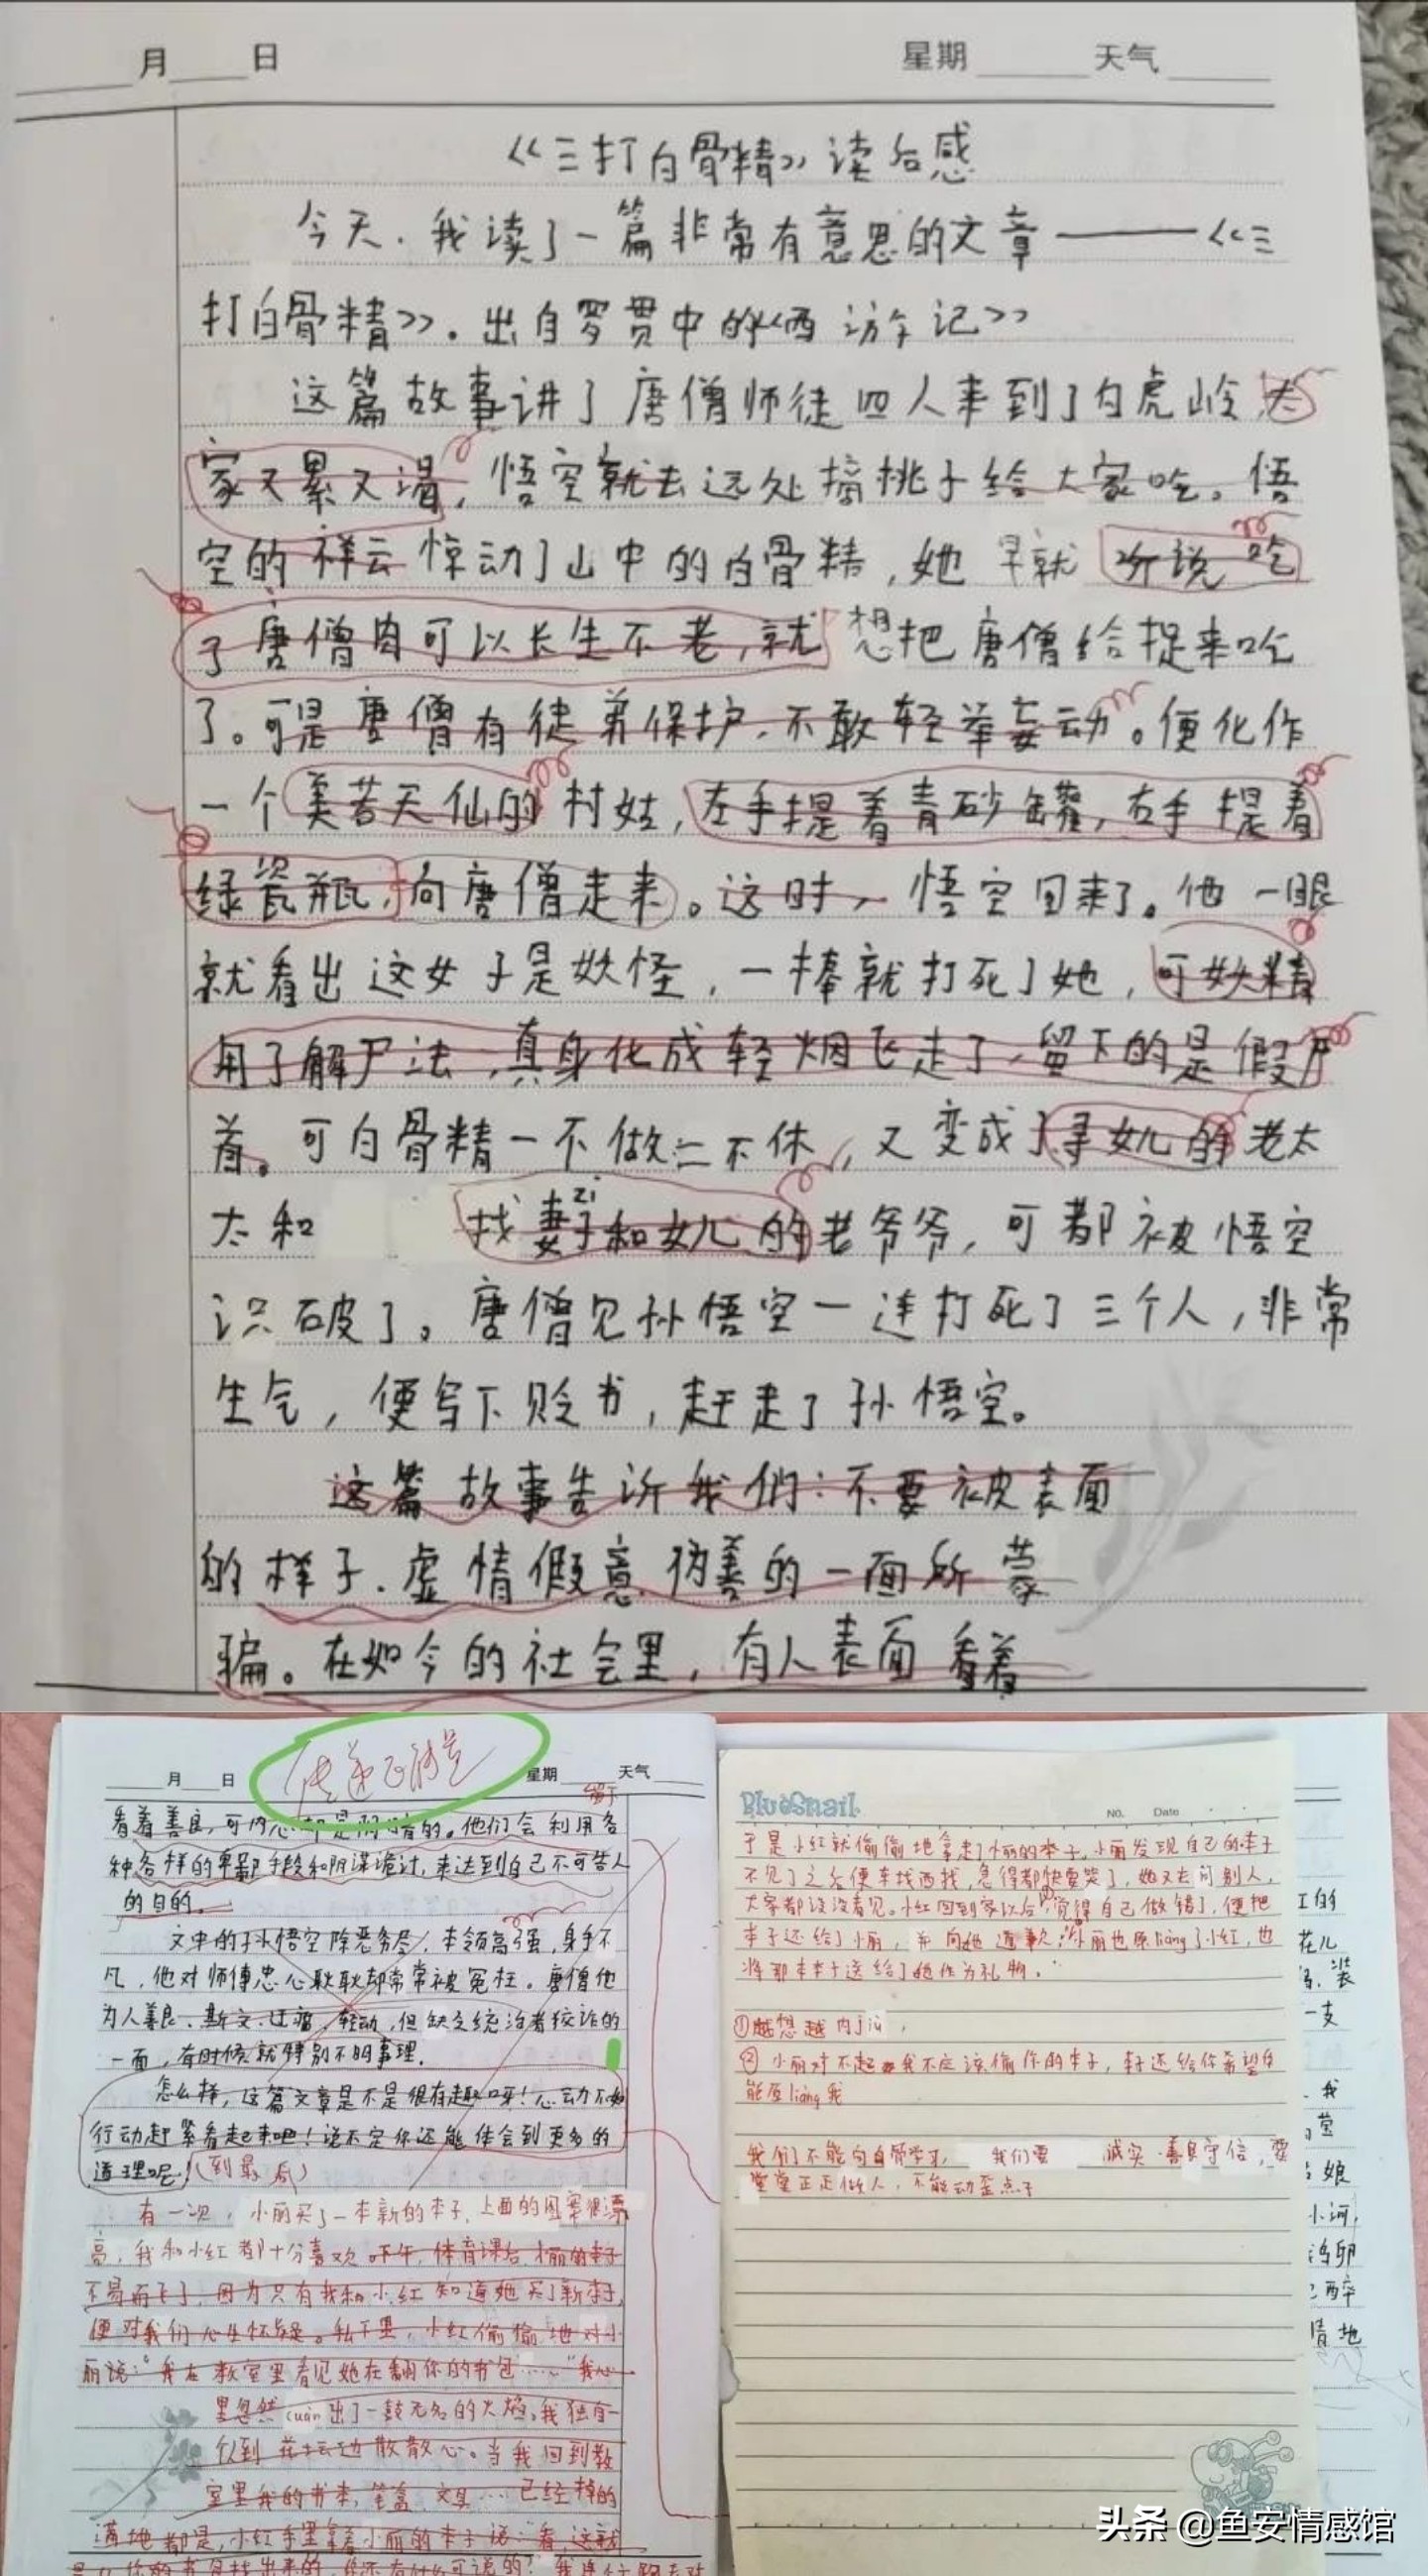 月 日 星期 天气
《三打白骨精》读后感
今天，我读了一篇非常有意思的文章——《三
打白骨精》。出自罗贯中的《西游记》
这篇故事讲了唐僧师徒四人来到了白虎岭，大
家又累又渴，悟空就去远处摘桃子给大家吃。悟
空的祥云惊动了山中的白骨精，她早就听说吃
了唐僧肉可以长生不老，就想把唐僧给捉来吃
了。可是唐僧有徒弟保护，不敢轻举妄动。便化作
一个美若天仙的村姑，左手提着青砂罐，右手提着
绿瓷瓶，向唐僧走来。这时，悟空回来了。他一眼
就看出这女子是妖怪，一棒就打死了她，可妖精
用了解尸法，真身化成轻烟飞走了，留下的是假尸
首。可白骨精一不做二不休，又变成了寻女儿的老太
太和找妻子和女儿的老爷爷，可都被悟空
zi
识破了。唐僧见孙悟空一连打死了三个人，非常
生气，便写下贬书，赶走了孙悟空。
这篇故事告诉我们：不要被表面
的样子、虚情假意、伪善的一面所蒙
骗。在如今的社会里，有人表面看着
月 日 传递正能量 星期 天气
留下
看着善良，可内心却是阴暗的。他们会利用各
种各样的卑鄙手段和阴谋诡计，来达到自己不可告人
的目的。
文中的孙悟空除恶务尽，本领高强，身手不
凡，他对师傅忠心耿耿却常常被冤枉。唐僧他
为人善良、斯文、迂腐，轻动，但缺乏统治者狡诈的
一面，有时候就特别不明事理。
怎么样，这篇文章是不是很有趣呀！心动不如
行动赶紧看起来吧！说不定你还能体会到更多的
道理呢！（到最后）
有一次，小丽买了一本新的本子，上面的图案很漂
亮，我和小红都十分喜欢。下午，体育课后，小丽的本子
不易而飞了，因为只有我和小红知道她买了新本子，
便对我们心生怀疑。私下里，小红偷偷地对小
丽说：“我在教室里看见她在翻你的书包……”我心
里忽然cuàn出了一鼓无名的火焰。我独自一
人到花坛边散散心。当我回到教
室里我的书本，笔盒、文具……已经掉的
满地都是，小红手里拿着小丽的本子说：“看，这就
BlueSnail
No. Date
于是小红就偷偷地拿走了小丽的本子，小丽发现自己的本子
不见了之后便东找西找，急得都快要哭了，她又去问别人，
大家都说没看见。小红回到家以后，觉得自己做错了，便把
本子还给了小丽，并向她道歉，小丽也原liàng了小红，也
将那本本子送给了她作为礼物。
①越想越内jiù，
②小丽对不起，我不应该偷你的本子，本子还给你希望你
能原liàng我
我们不能向白骨学习，我们要诚实、善良守信，要
堂堂正正做人，不能动歪点子
红的
花儿
装
一支
我
娘
小河，
卵
醉
情地
头条 @鱼安情感馆